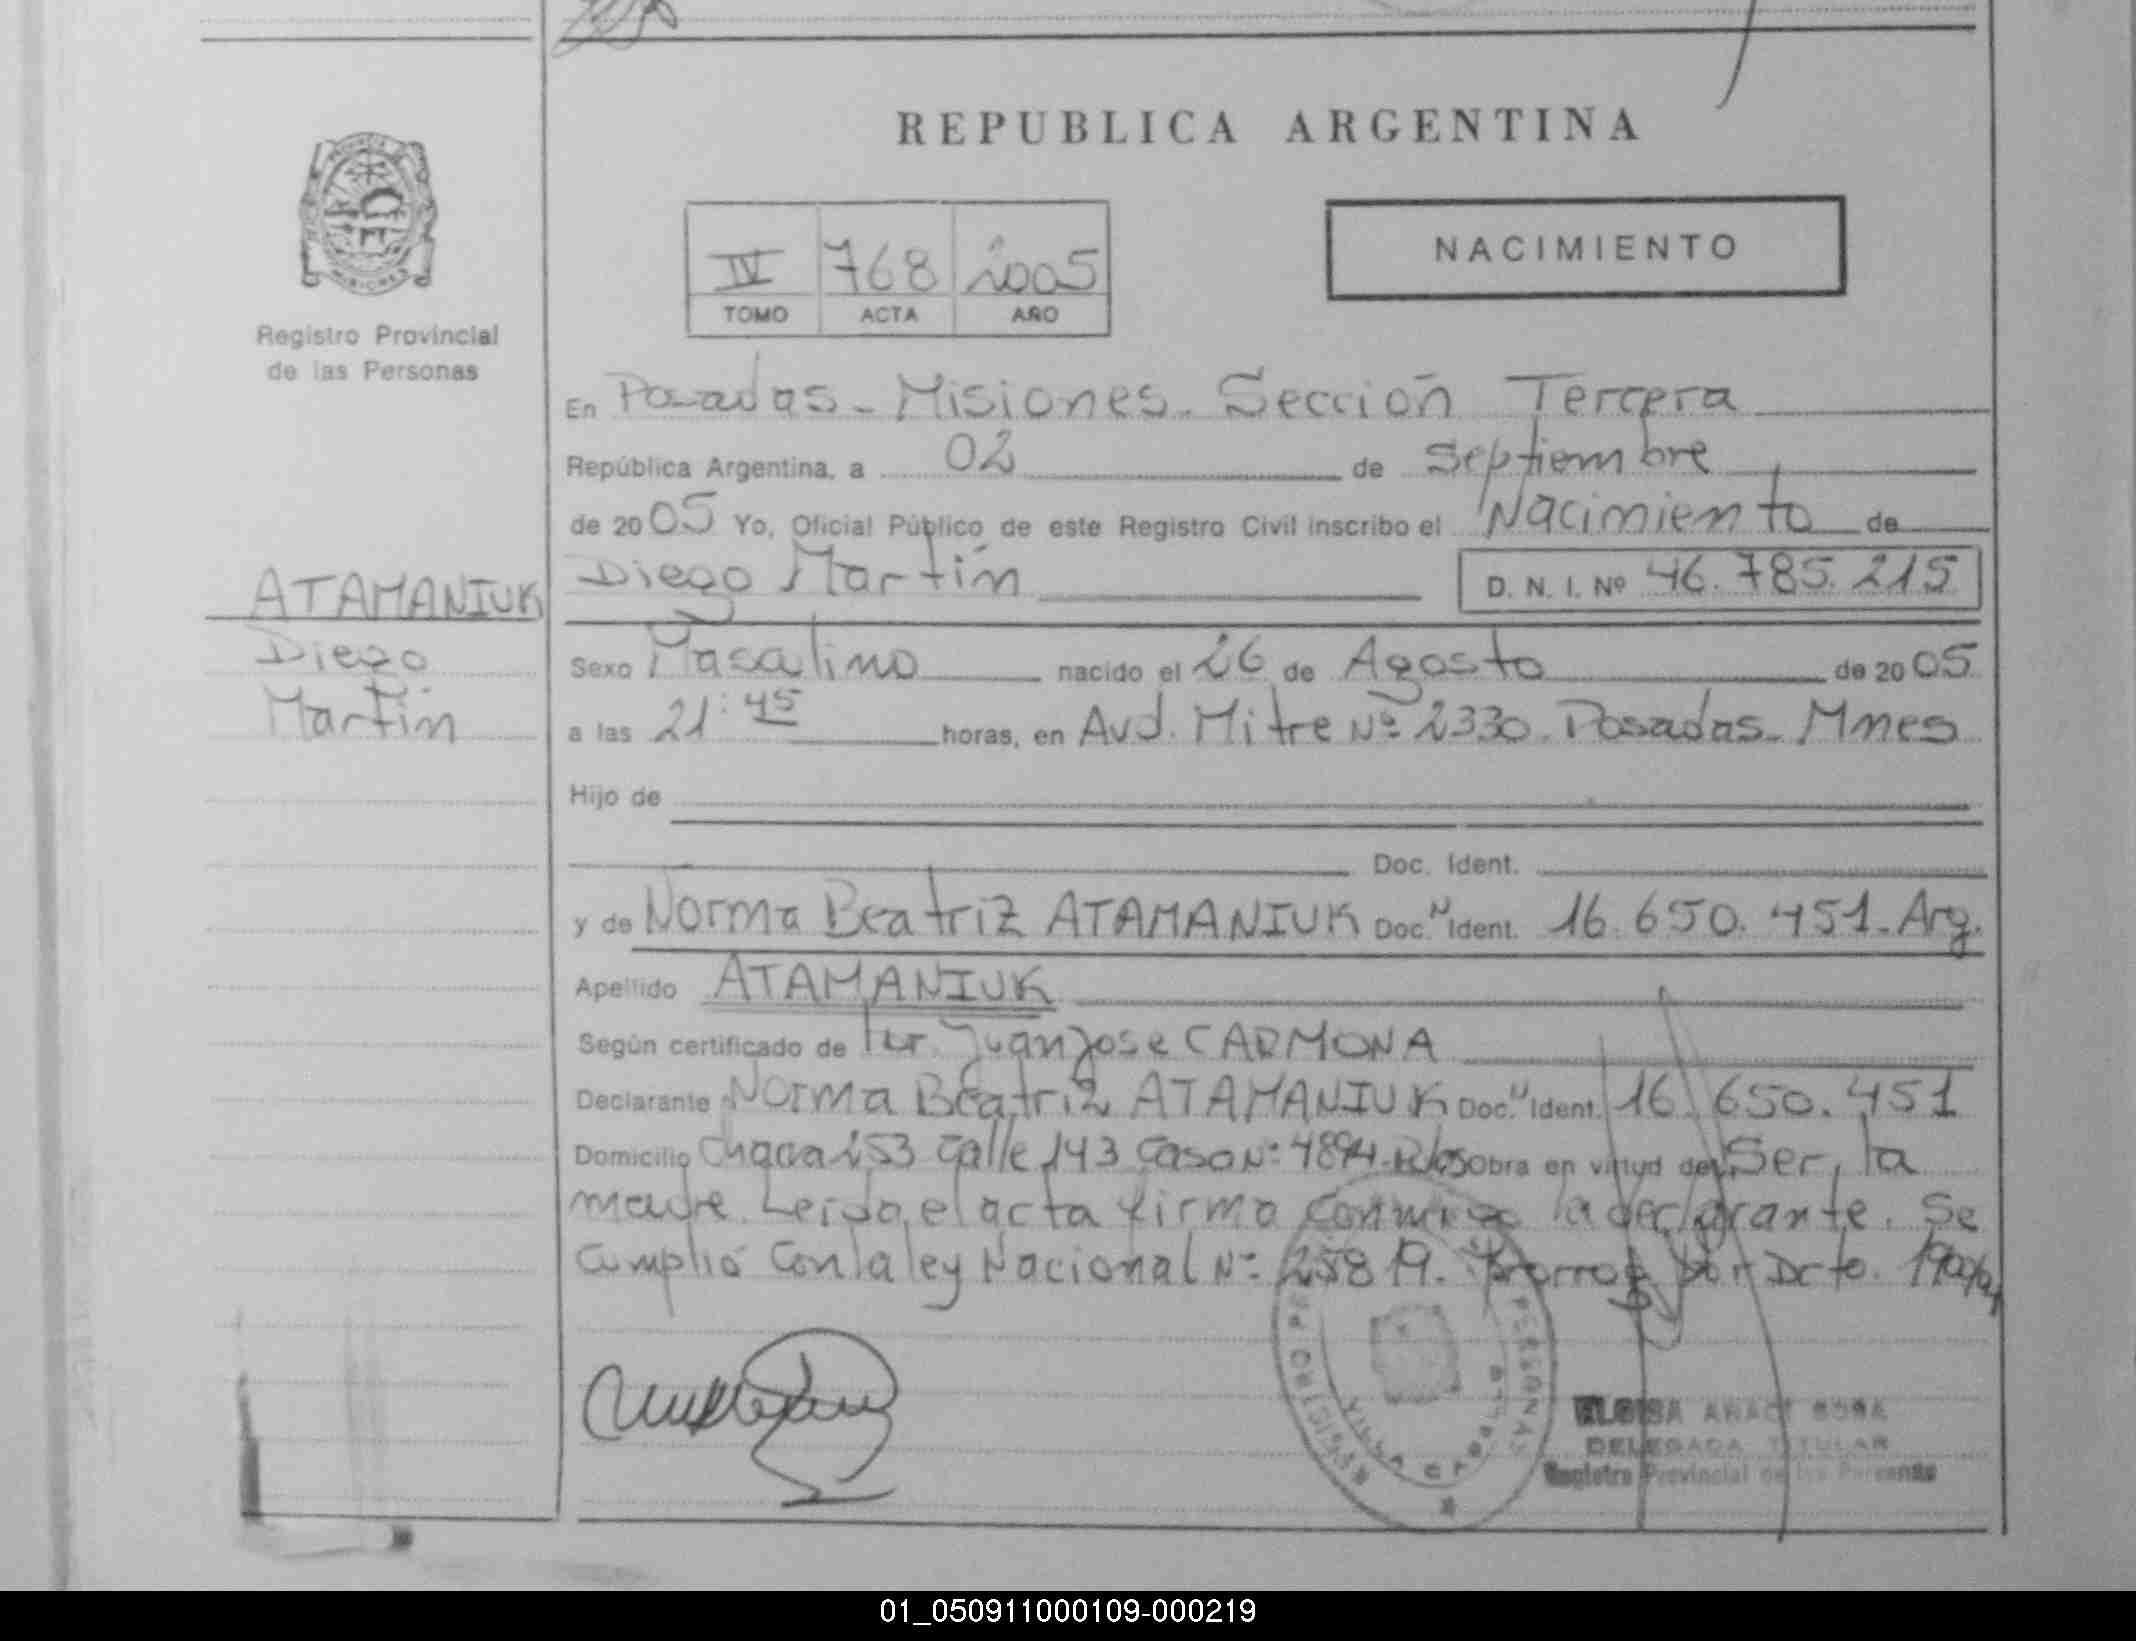 REPUBLICA ARGENTINA
NACIMIENTO
IV 768 2005
TOMO ACTA AÑO
Registro Provincial
de las Personas
En Posadas - Misiones - Sección Tercera
República Argentina, a 02 de Septiembre
de 2005 Yo, Oficial Público de este Registro Civil inscribo el Nacimiento de
ATAMANIUK
Diego
Martín
Diego Martín D. N. I. Nº 46.785.215
Sexo Masculino nacido el 26 de Agosto de 2005
a las 21:45 horas, en Avd. Mitre Nº 2330. Posadas - Mnes
Hijo de
Doc. Ident.
y de Norma Beatriz ATAMANIUK Doc. N Ident. 16.650.451 - Arg.
Apellido ATAMANIUK
Según certificado de Juan Jose CARMONA
Declarante Norma Beatriz ATAMANIUK Doc. N Ident. 16.650.451
Domicilio Chacra 253 Calle 143 Casa Nº 4894 - Obra en virtud de Ser la
madre. Leida el acta firma conmigo la declarante. Se
Cumplió Con la ley Nacional Nº 25819. por Dcto.
PERSONAS
VILLA CABELLO
DELEGADA TITULAR
Registro Provincial de las Personas
01_050911000109-000219